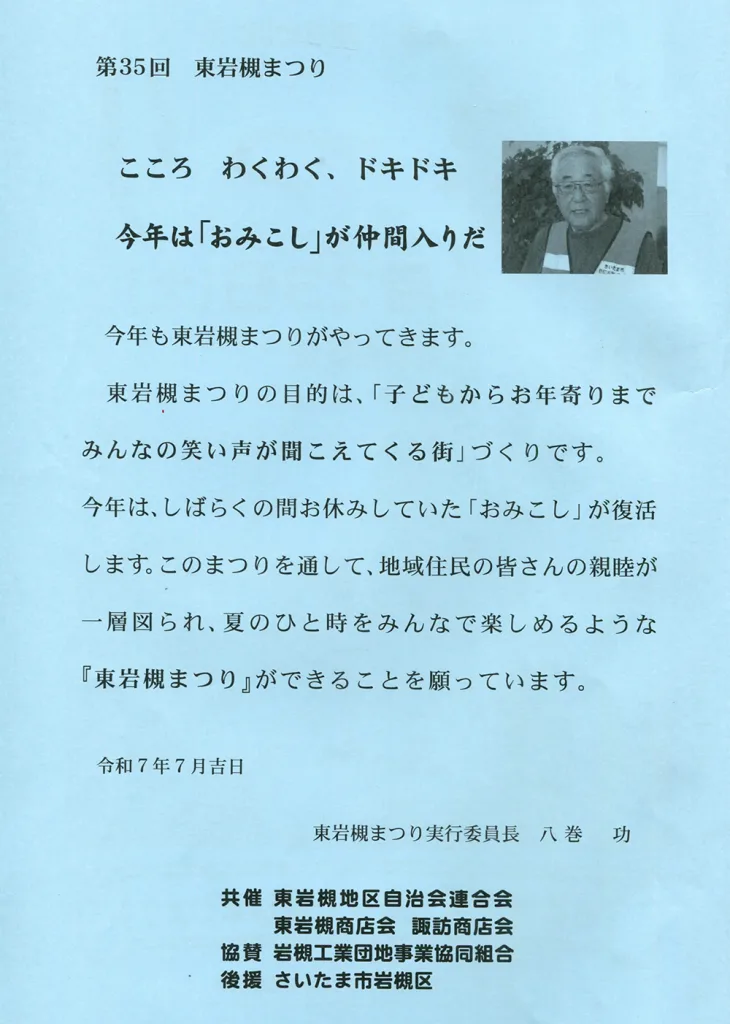 第35回　東岩槻まつり
こころ　わくわく、ドキドキ
今年は「おみこし」が仲間入りだ
今年も東岩槻まつりがやってきます。
東岩槻まつりの目的は、「子どもからお年寄りまで
みんなの笑い声が聞こえてくる街」づくりです。
今年は、しばらくの間お休みしていた「おみこし」が復活
します。このまつりを通して、地域住民の皆さんの親睦が
一層図られ、夏のひと時をみんなで楽しめるような
『東岩槻まつり』ができることを願っています。
令和７年７月吉日
東岩槻まつり実行委員長　八巻　功
共催 東岩槻地区自治会連合会
東岩槻商店会 諏訪商店会
協賛 岩槻工業団地事業協同組合
後援 さいたま市岩槻区